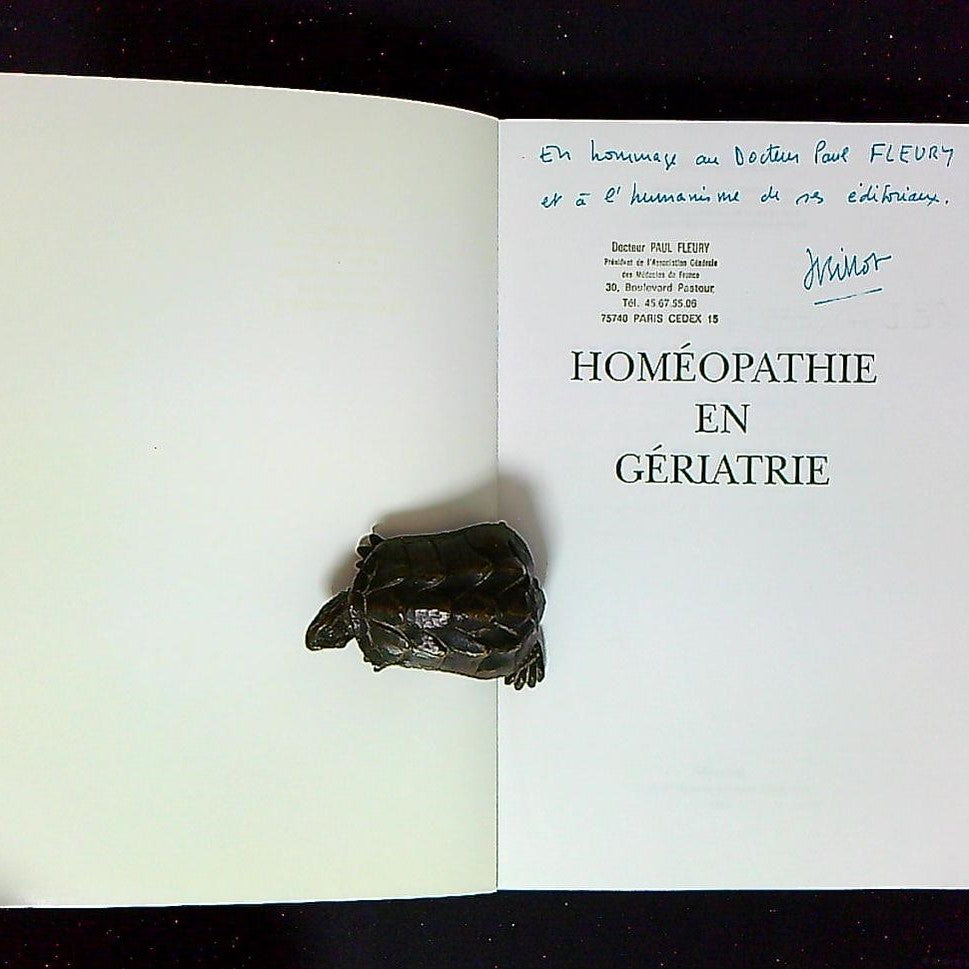 En hommage au Docteur Paul FLEURY
et à l'humanisme de ses éditoriaux.
Docteur PAUL FLEURY
Président de l'Association Générale
des Médecins de France
30, Boulevard Pasteur
Tél. 45 67.55.06
75740 PARIS CEDEX 15
HOMÉOPATHIE
EN
GÉRIATRIE